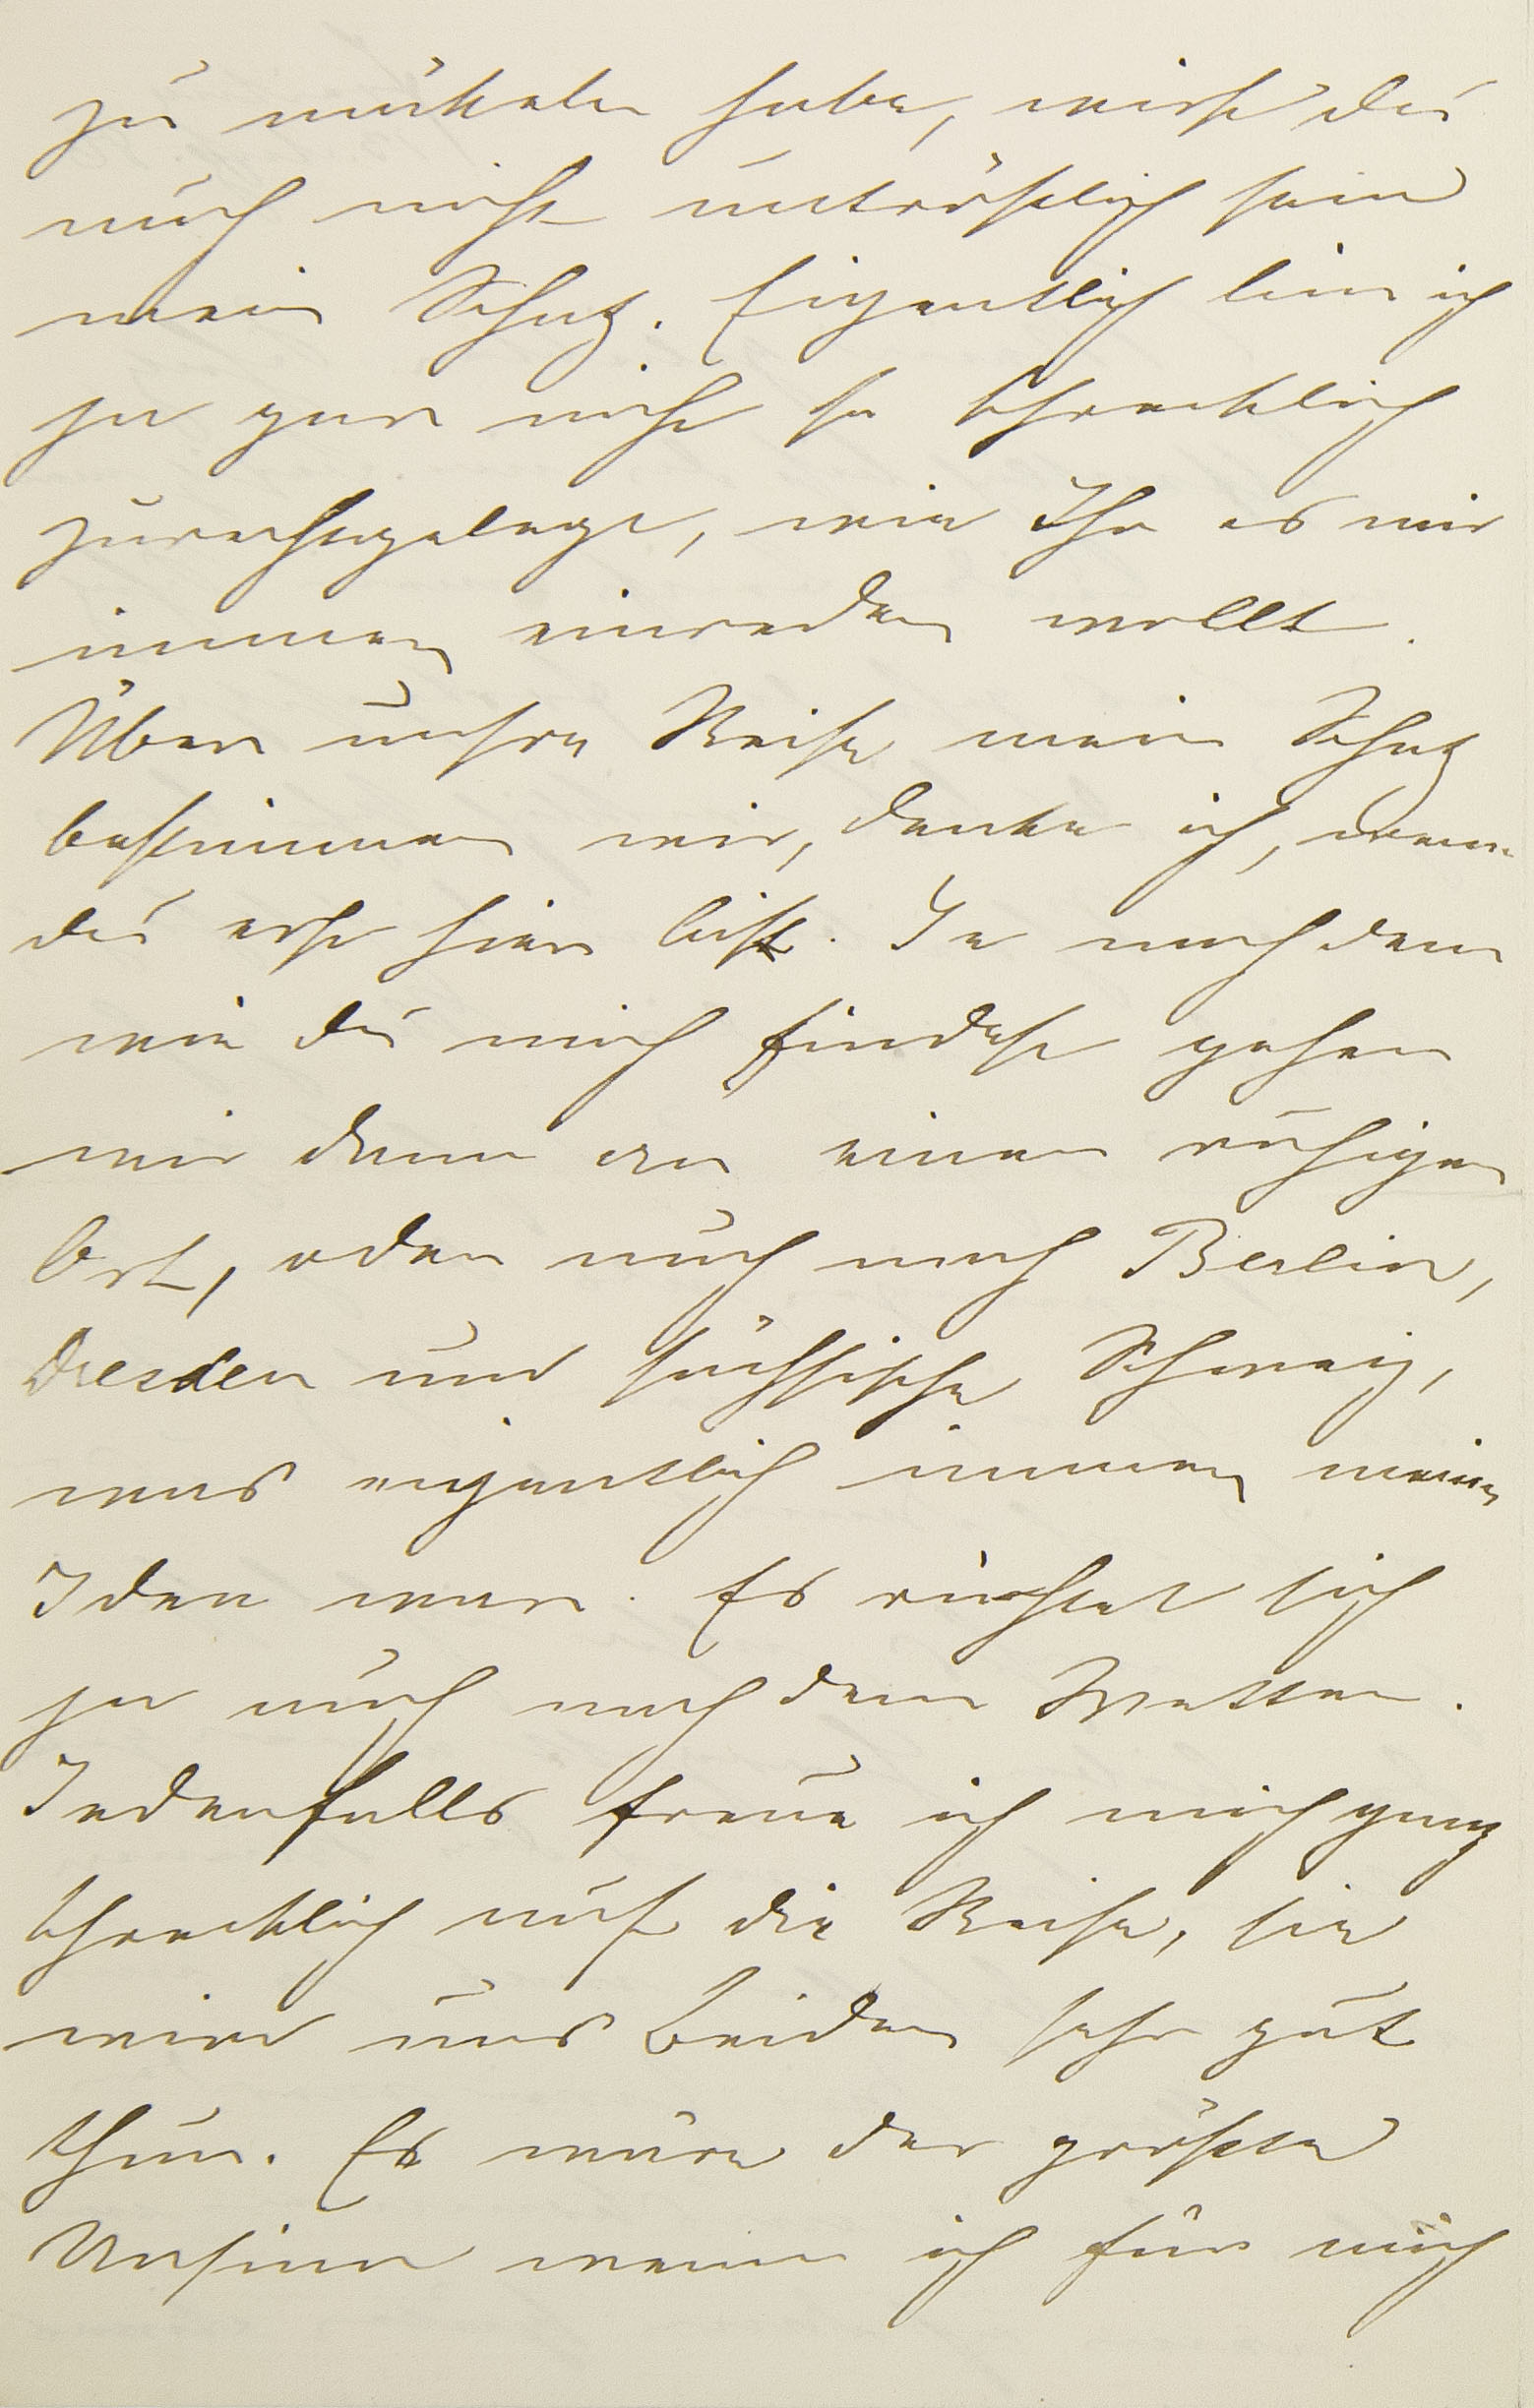 zu mäkeln habe, wirst du
auch nicht untröstlich sein
mein Schatz. Eigentlich bin ich
ja gar nicht so schrecklich
zurechtgelegt, wie Ihr es mir
immer einreden wollt.
Über unsre Reise mein Schatz
bestimmen wir, denke ich, wenn
du erst hier bist. Je nach dem
wie du mich findest gehen
wir dann an einen ruhigen
Ort, oder auch nach Berlin,
Dresden und sächsische Schweiz,
was eigentlich immer meine
Idee war. Es richtet sich
ja auch nach dem Wetter.
Jedenfalls freue ich mich ganz
schrecklich auf die Reise, sie
wird uns Beiden sehr gut
thun. Es wäre der größte
Unsinn wenn ich für mich